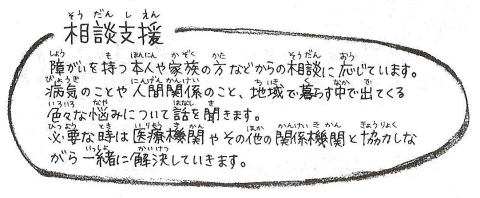 相談支援
障がいを持つ本人や家族の方などからの相談に応じています。
病気のことや人間関係のこと、地域で暮らす中で出てくる
色々な悩みについて話を聞きます。
必要な時は医療機関やその他の関係機関と協力しな
がら一緒に解決していきます。